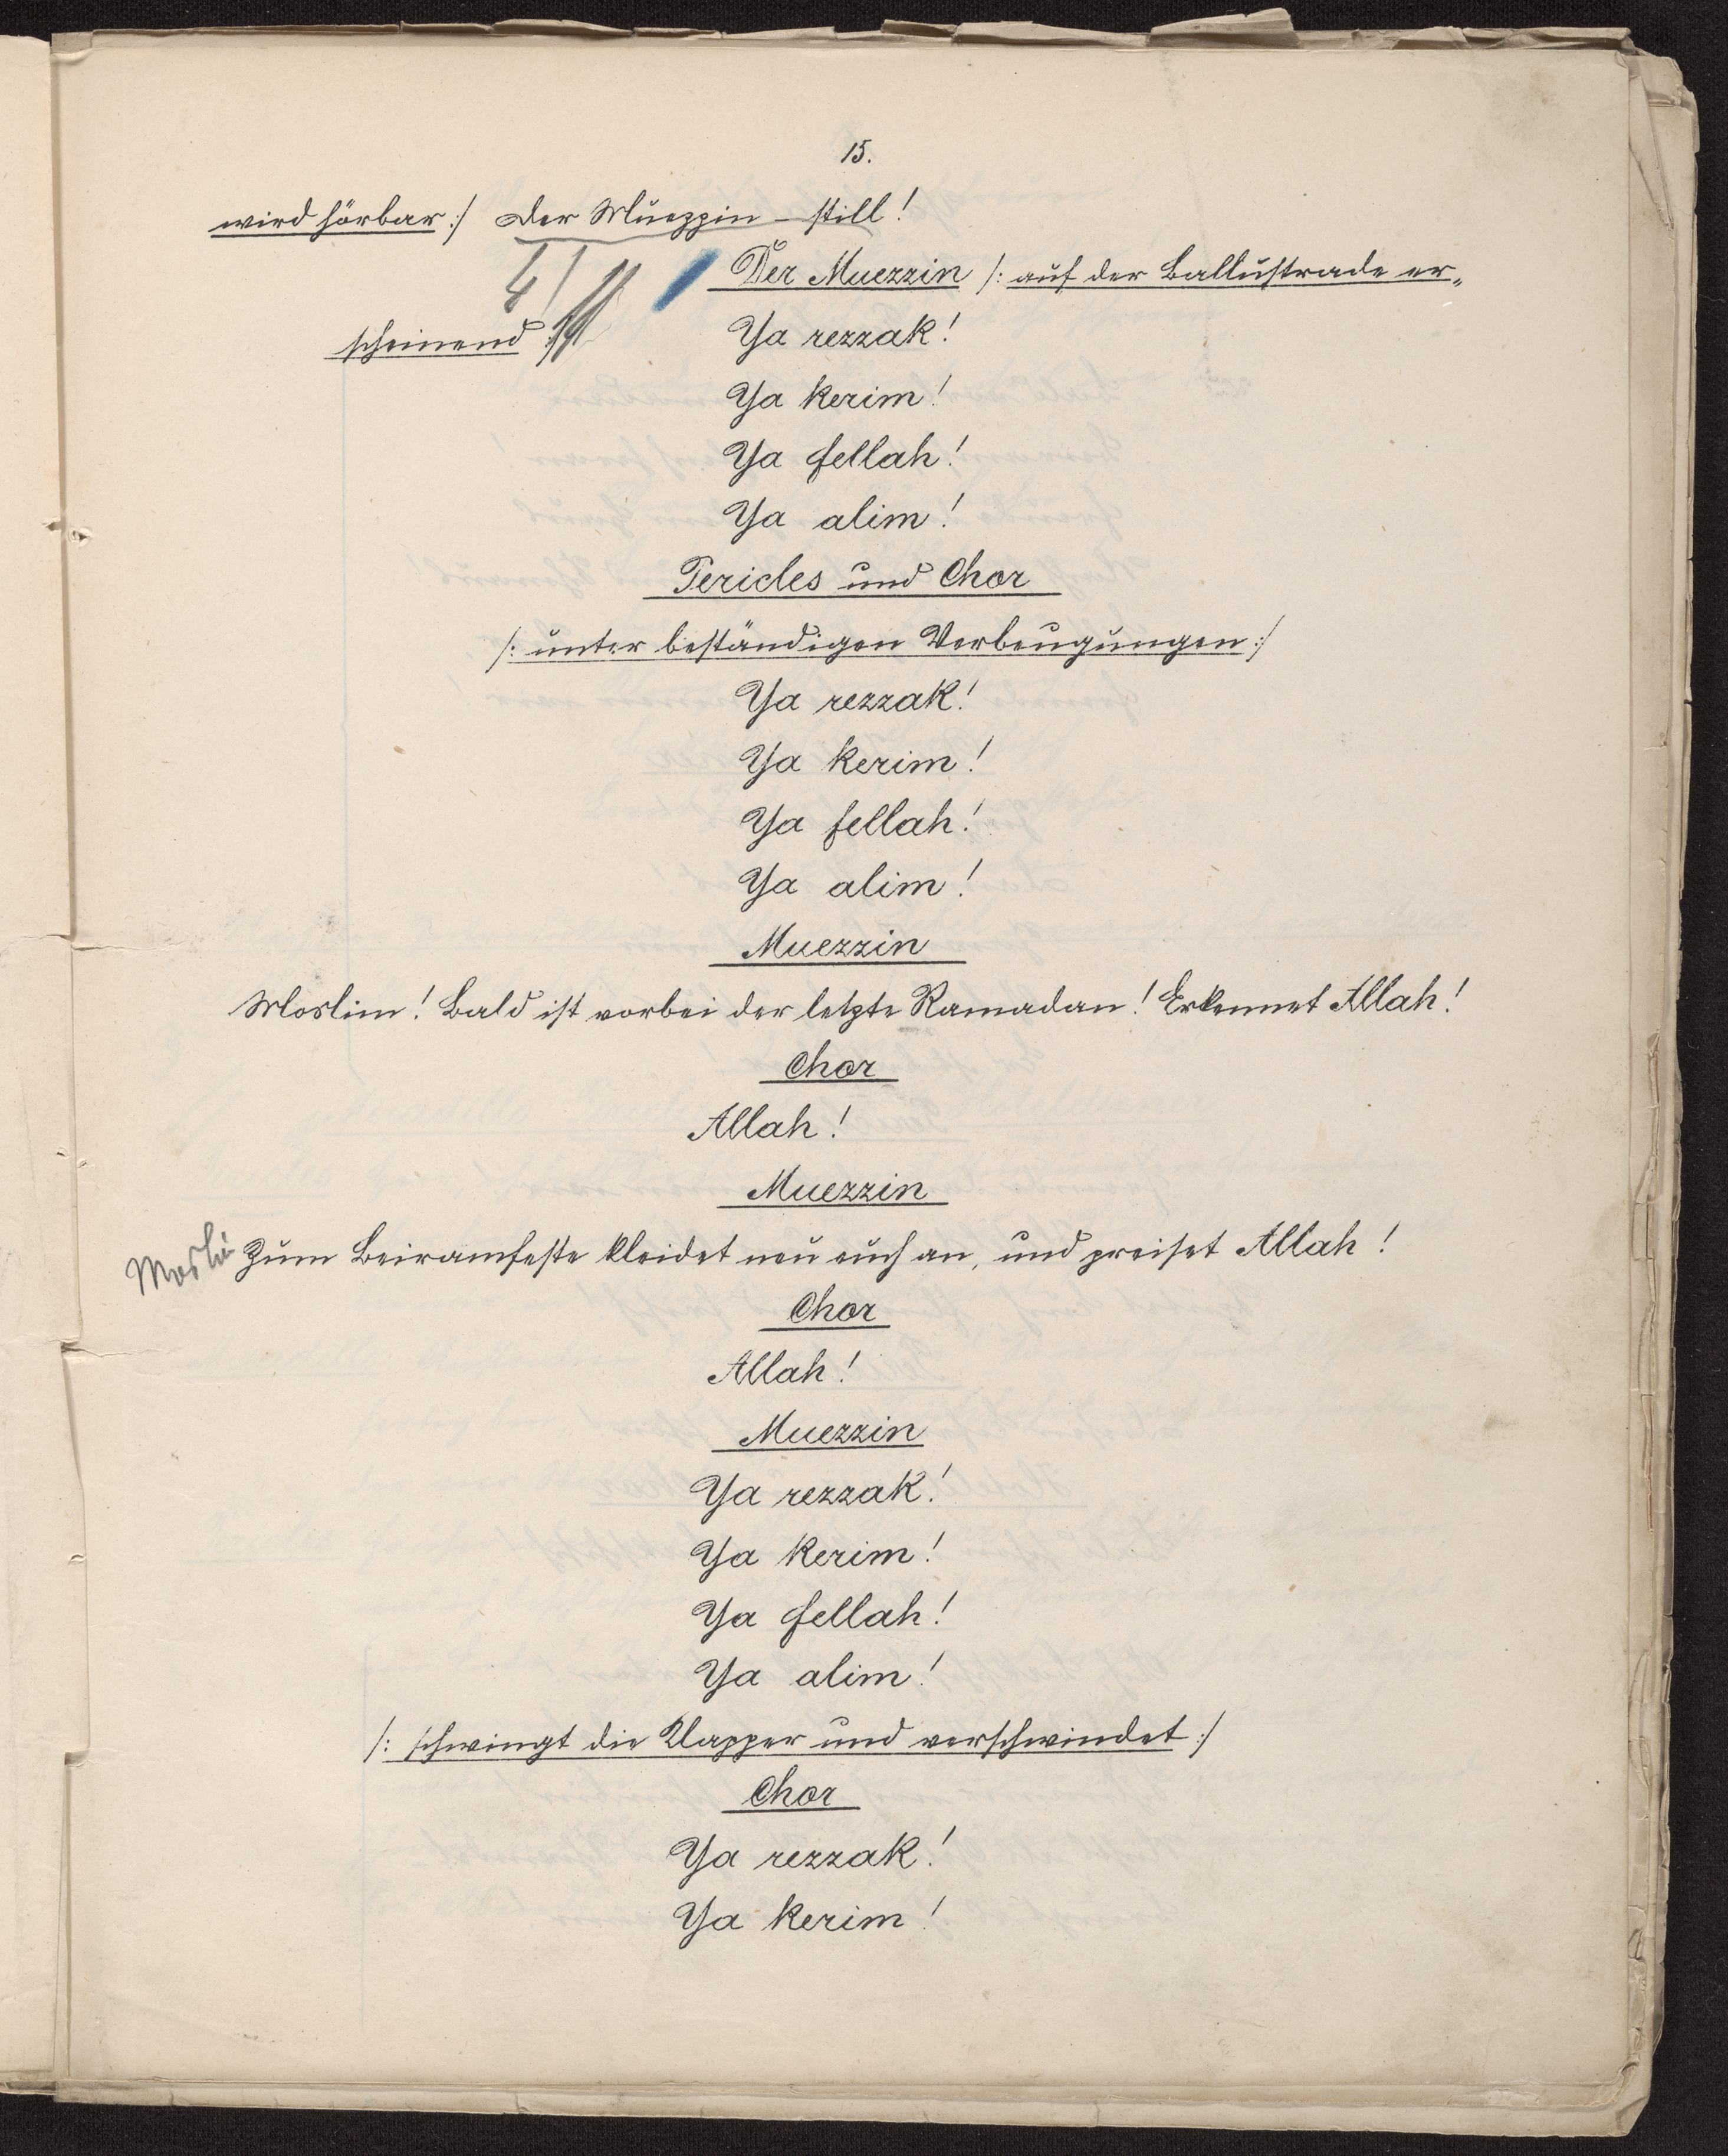 15.
wird hörbar :/ Der Muezzin – still!
Der Muezzin /: auf der Ballustrade er„
scheinend :/
Ya rezzak!
Ya kerim!
Ya fellah!
Ya alim!
Pericles und Chor
/: unter beständigen Verbeugungen :/
Ya rezzak!
Ya kerim!
Ya fellah!
Ya alim!
Muezzin
Moslim! Bald ist vorbei der letzte Ramadan! Erkennet Allah!
Chor
Allah!
Muezzin
Moslim Zum Beiramfeste kleidet neu euch an, und preiset Allah!
Chor
Allah!
Muezzin
Ya rezzak!
Ya kerim!
Ya fellah!
Ya alim!
/: schwingt die Klapper und verschwindet :/
Chor
Ya rezzak!
Ya kerim!